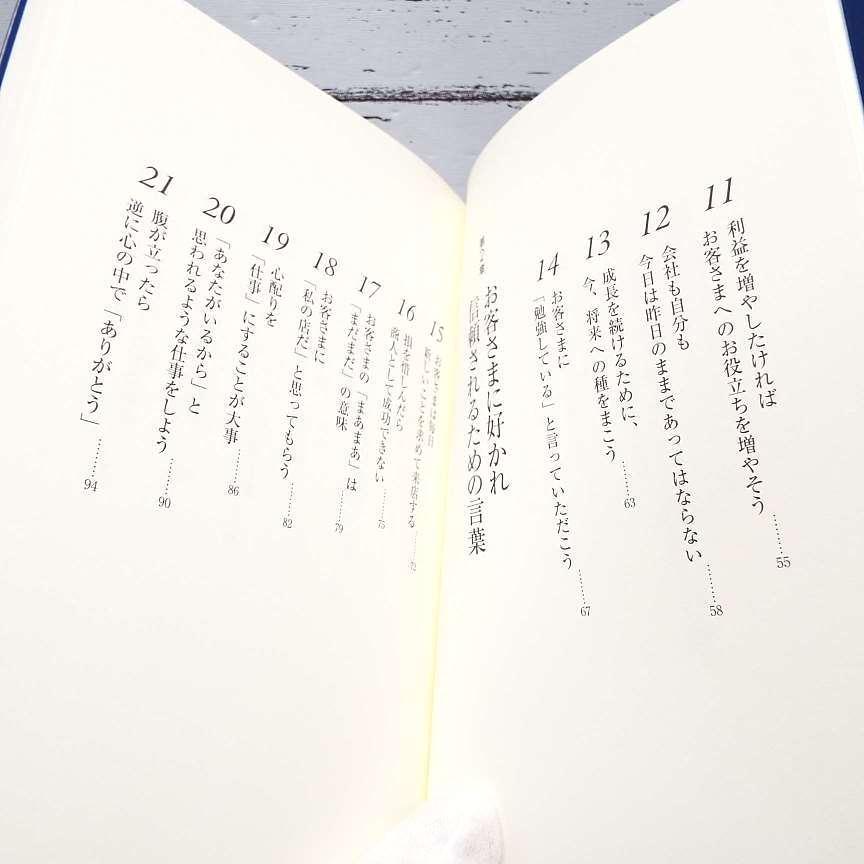 11
利益を増やしたければ
お客さまへのお役立ちを増やそう………55
12
会社も自分も
今日は昨日のままであってはならない………58
13
成長を続けるために、
今、将来への種をまこう………63
14
お客さまに
「勉強している」と言っていただこう………67
第2章
お客さまに好かれ
信頼されるための言葉
15
お客さまは毎日
新しいことを求めて来店する………72
16
損を惜しんだら
商人として成功できない………75
17
お客さまの「まあまあ」は
「まだまだ」の意味………79
18
お客さまに
「私の店だ」と思ってもらう………82
19
心配りを
「仕事」にすることが大事………86
20
「あなたがいるから」と
思われるような仕事をしよう………90
21
腹が立ったら
逆に心の中で「ありがとう」………94